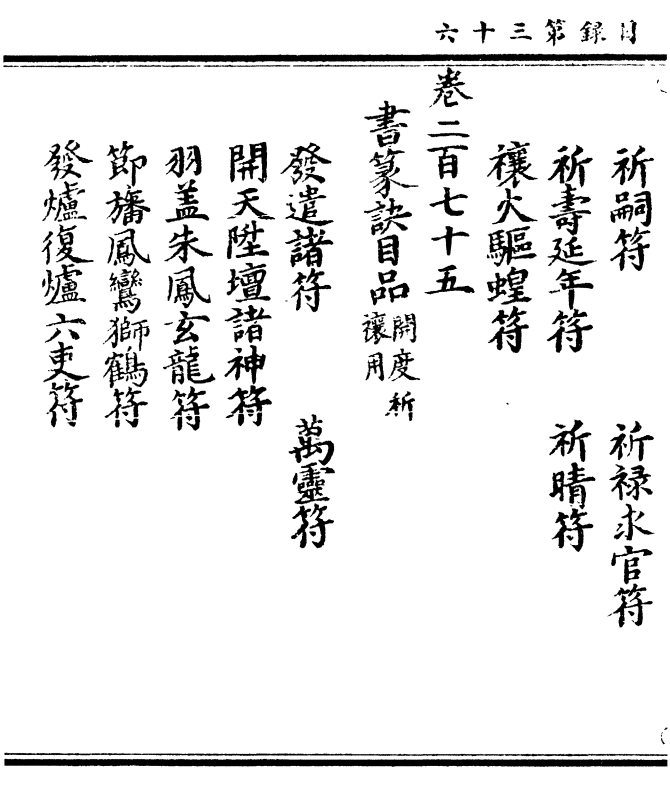 目錄第三十六
祈嗣符　祈禄求官符
祈壽延年符　祈晴符
禳火驅蝗符
卷二百七十五
書篆訣目品開度祈禳用
發遣諸符　萬靈符
開天陞壇諸神符
羽盖朱鳳玄龍符
節旛鳳鸞獅鶴符
發爐復爐六吏符